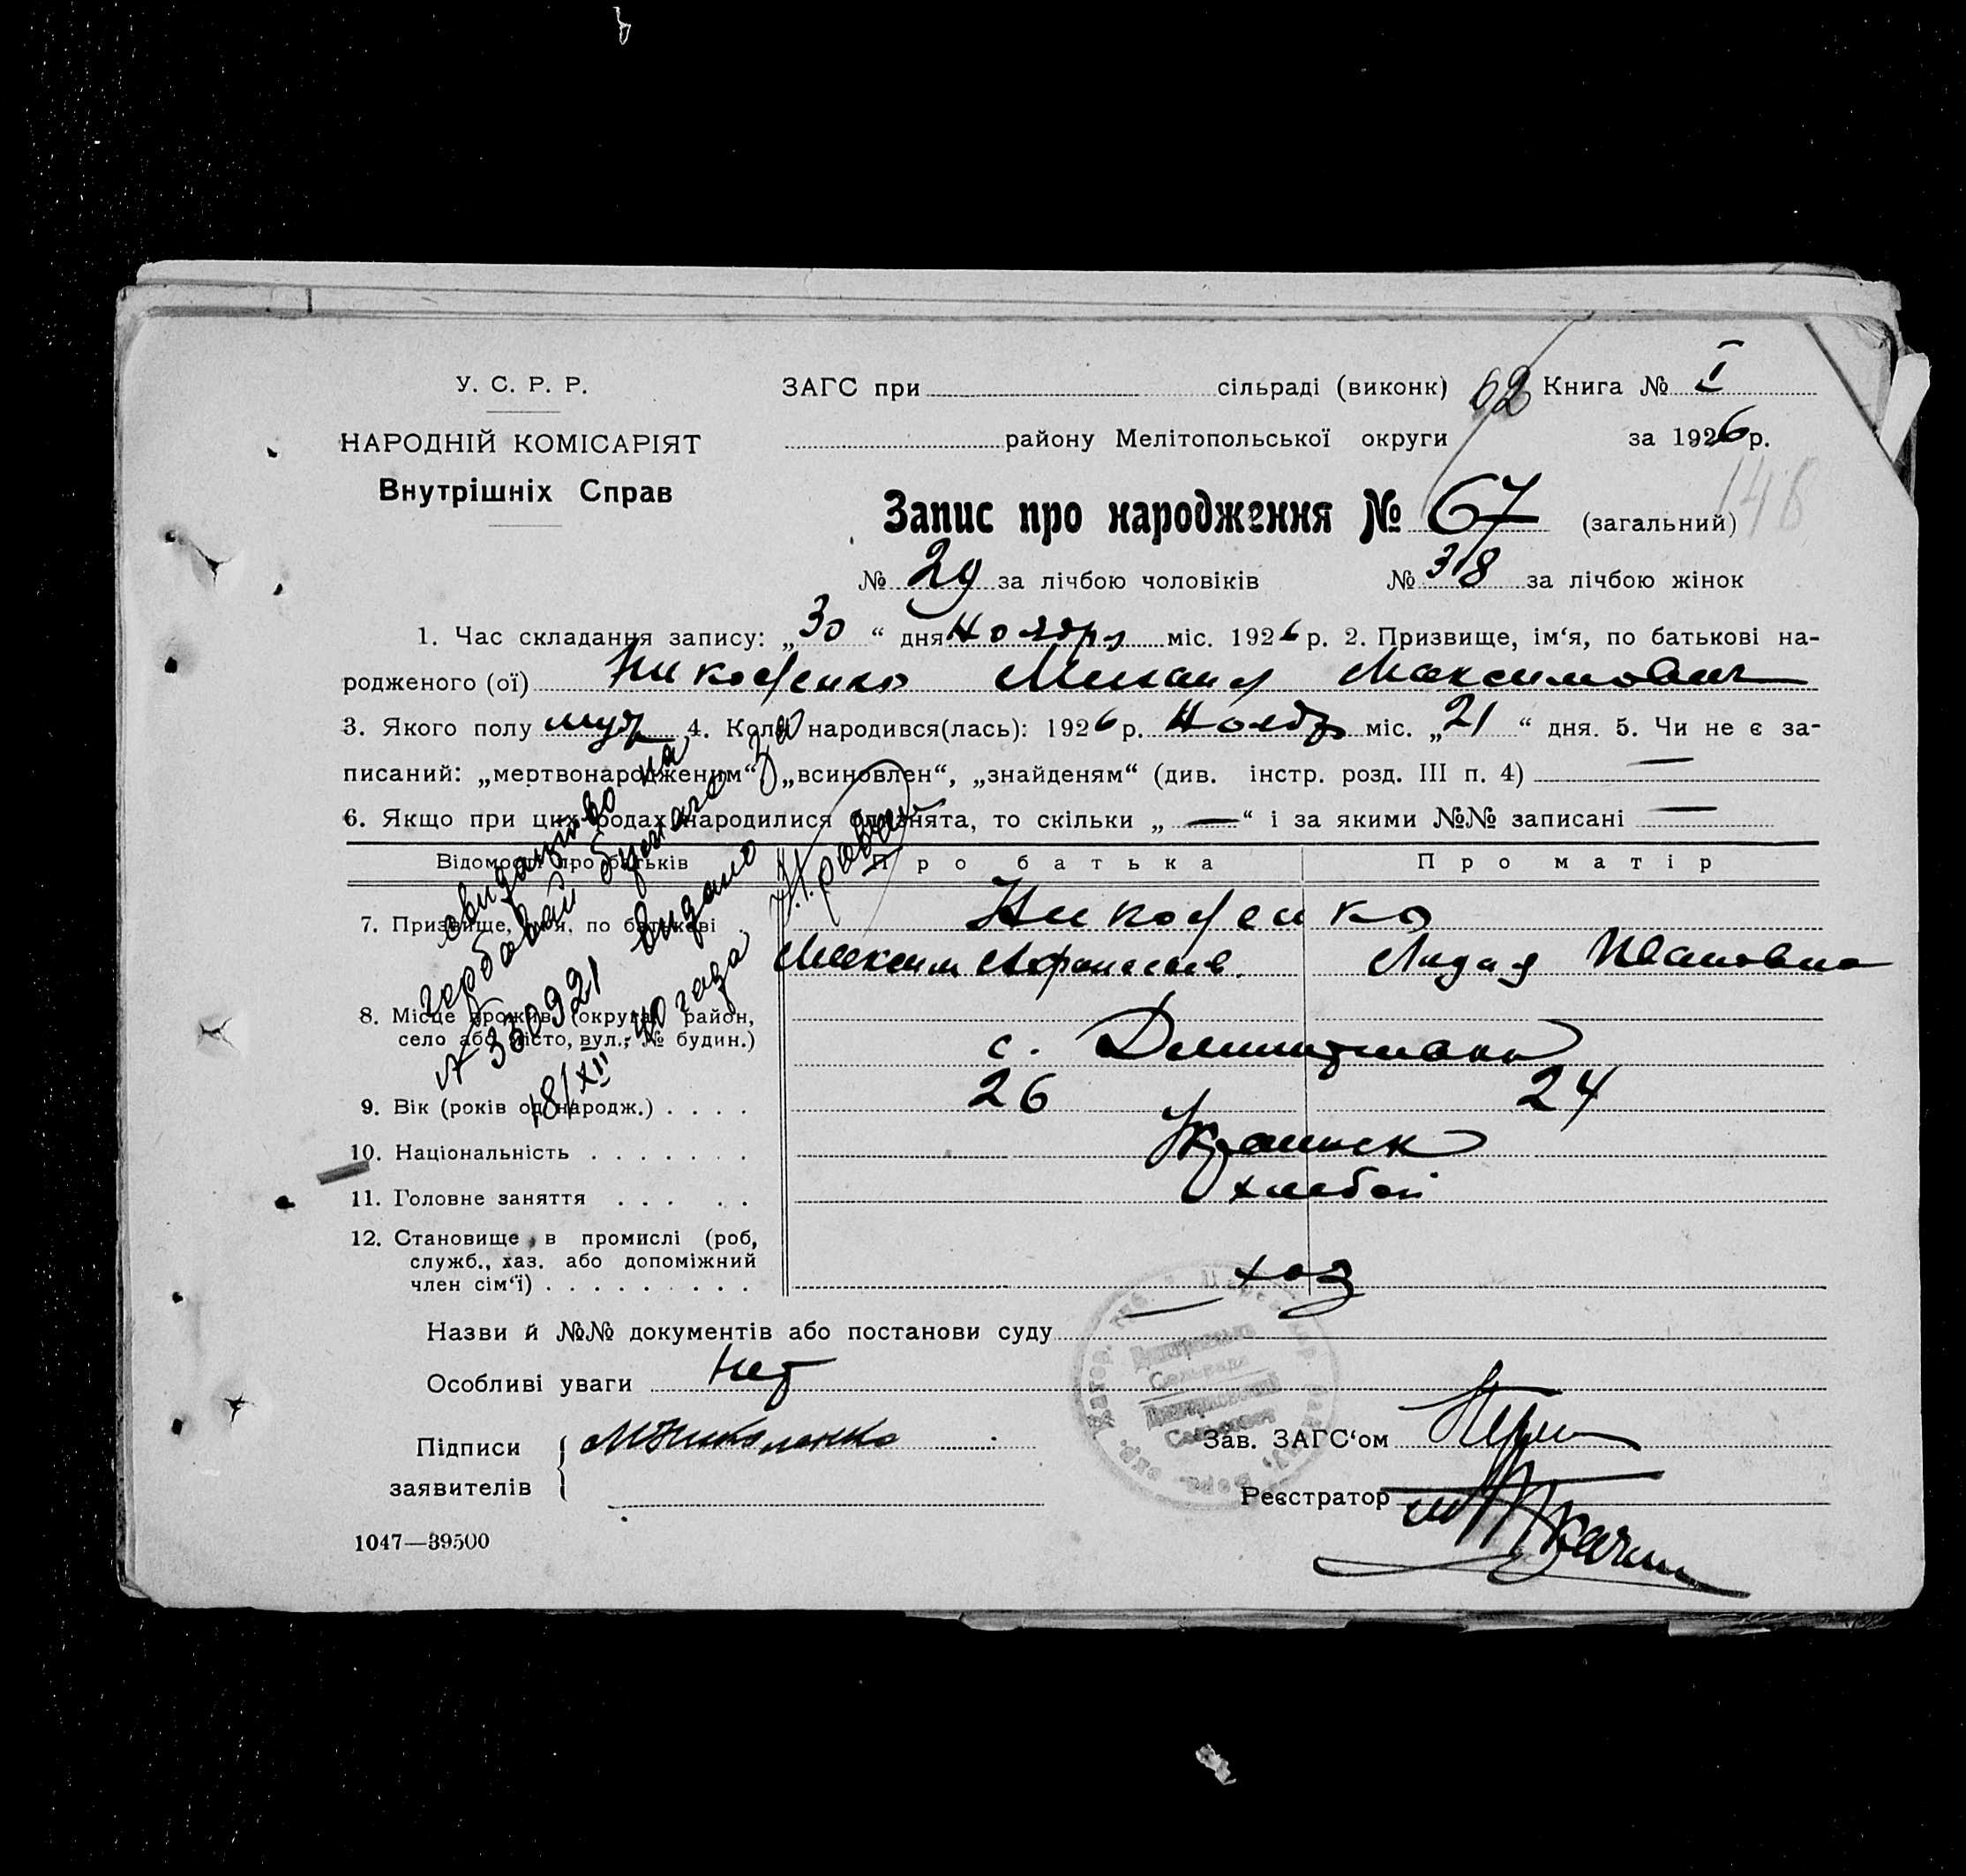 У. С. Р. Р.
НАРОДНІЙ КОМІСАРІЯТ
Внутрішніх Справ
ЗАГС при сільраді (виконк) 62 Книга № I
району Мелітопольської округи за 1926 р.
148
Запис про народження № 67 (загальний)
№ 29 за лічбою чоловіків № 38 за лічбою жінок
1. Час складання запису: „30“ дня Ноября міс. 1926 р. 2. Призвище, ім‘я, по батькові на-
родженого (ої) Михаил Максимович
3. Якого полу муж 4. Коли народився(лась): 1926 р. Ноябр міс. „21“ дня. 5. Чи не є за-
писаний: „мертвонародженим“, „всиновлен“, „знайденям“ (див. інстр. розд. III п. 4) —
6. Якщо при цих родах народилися близнята, то скільки „—“ і за якими №№ записані —
Відомості про батьків Про батька Про матір
7. Призвище, ім‘я, по батькові
Максим Афанасьев. Лидия Ивановна
8. Місце прожив. (округа, район,
село або місто, вул., № будин.) с. Димитровка
9. Вік (років од народж.) 26 24
10. Національність Украинск
11. Головне заняття хлебоп
12. Становище в промислі (роб,
служб., хаз. або допоміжний
член сім‘ї) хоз
свидетельство на
гербовой бумаге за
№ 330921 выдано
18/XII 40 года
Назви й №№ документів або постанови суду —
Особливі уваги нет
Підписи
заявителів
Зав. ЗАГС‘ом
Реєстратор
1047—39500